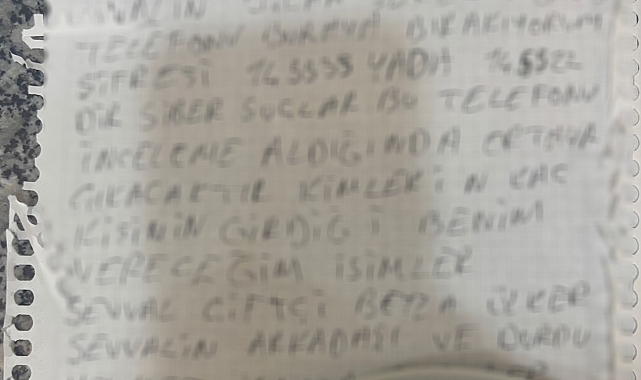 TELEFONU BURAYA BIRAKIYORUM
ŞİFRESİ 145555 YADA 145522
DİR SİBER SUÇLAR BU TELEFONU
İNCELEME ALDIĞINDA ORTAYA
ÇIKACAKTIR KİMLERİN KAÇ
KİŞİNİN GİRDİĞİ BENİM
VERECEĞİM İSİMLER
ŞEVVAL ÇİFTÇİ BEYZA İLKER
ŞEVVALİN ARKADAŞI VE DURDU